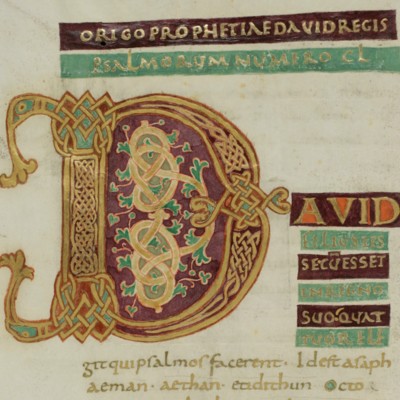 ORIGO PROPHETIAE DAVID REGIS
PSALMORUM NUMERO CL
DAVID
FILIUS IES
SE CŪ ESSET
IN REGNO
SUO·QUAT
TUOR ELE
git qui psalmos facerent · Id est asaph
aeman · aethan · et idithun Octo